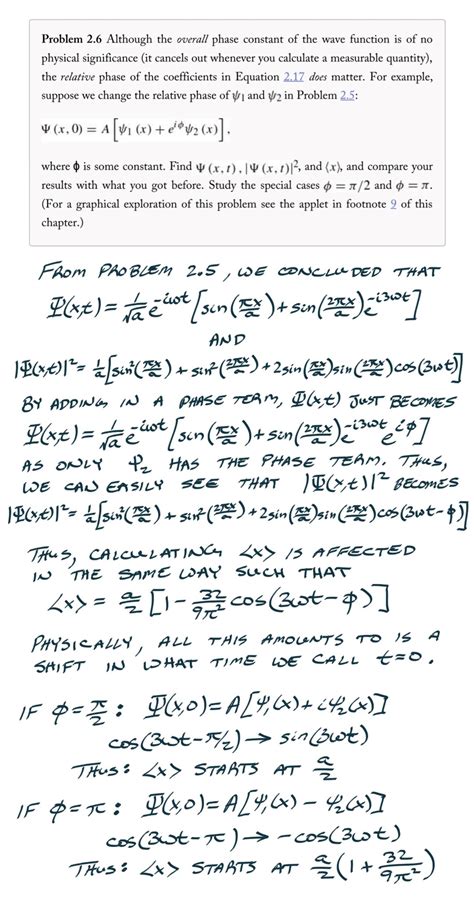 Problem 2.6 Although the overall phase constant of the wave function is of no
physical significance (it cancels out whenever you calculate a measurable quantity),
the relative phase of the coefficients in Equation 2.17 does matter. For example,
suppose we change the relative phase of ψ₁ and ψ₂ in Problem 2.5:
Ψ (x, 0) = A [ψ₁ (x) + e^{iϕ} ψ₂ (x)] ,
where ϕ is some constant. Find Ψ (x, t) , |Ψ (x, t)|², and ⟨x⟩, and compare your
results with what you got before. Study the special cases ϕ = π/2 and ϕ = π.
(For a graphical exploration of this problem see the applet in footnote 9 of this
chapter.)
FROM PROBLEM 2.5, WE CONCLUDED THAT
Ψ(x,t) = 1/√a e^{-iωt} [sin(πx/a) + sin(2πx/a) e^{-i3ωt}]
AND
|Ψ(x,t)|² = 1/a [sin²(πx/a) + sin²(2πx/a) + 2sin(πx/a)sin(2πx/a)cos(3ωt)]
BY ADDING IN A PHASE TERM, Ψ(x,t) JUST BECOMES
Ψ(x,t) = 1/√a e^{-iωt} [sin(πx/a) + sin(2πx/a) e^{-i3ωt} e^{iϕ}]
AS ONLY Ψ₂ HAS THE PHASE TERM. THUS,
WE CAN EASILY SEE THAT |Ψ(x,t)|² BECOMES
|Ψ(x,t)|² = 1/a [sin²(πx/a) + sin²(2πx/a) + 2sin(πx/a)sin(2πx/a)cos(3ωt-ϕ)]
THUS, CALCULATING <x> IS AFFECTED
IN THE SAME WAY SUCH THAT
<x> = a/2 [1 - 32/9π² cos(3ωt-ϕ)]
PHYSICALLY, ALL THIS AMOUNTS TO IS A
SHIFT IN WHAT TIME WE CALL t=0.
IF ϕ = π/2 : Ψ(x,0) = A[Ψ₁(x) + iΨ₂(x)]
cos(3ωt-π/2) → sin(3ωt)
THUS: <x> STARTS AT a/2
IF ϕ = π : Ψ(x,0) = A[Ψ₁(x) - Ψ₂(x)]
cos(3ωt-π) → -cos(3ωt)
THUS: <x> STARTS AT a/2 (1 + 32/9π²)